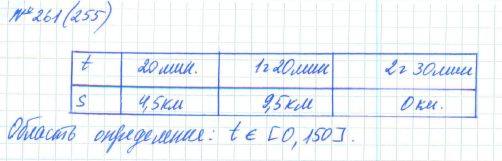 № 261 (255)
t 20 мин. 1ч 20 мин 2ч 30 мин
S 4,5 км 9,5 км 0 км.
Область определение: t ∈ [0, 150].